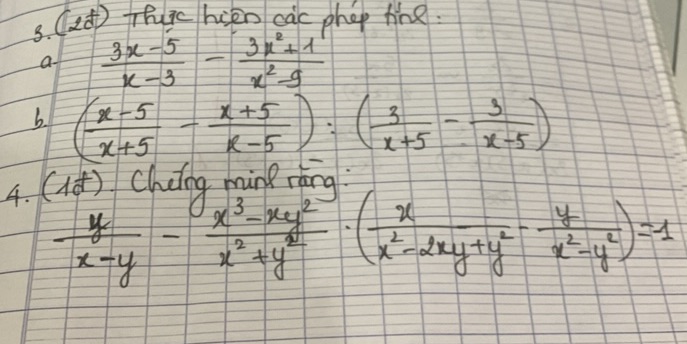 3. (2đ) Thực hiện các phép tính.
a. (3x - 5)/(x - 3) - (3x² + 1)/(x² - 9)
b. ((x - 5)/(x + 5) - (x + 5)/(x - 5)) : (3/(x + 5) - 3/(x - 5))
4. (1đ). Chứng minh rằng:
y/(x - y) - (x³ - xy²)/(x² + y²) · (x/(x² - 2xy + y²) - y/(x² - y²)) = 1